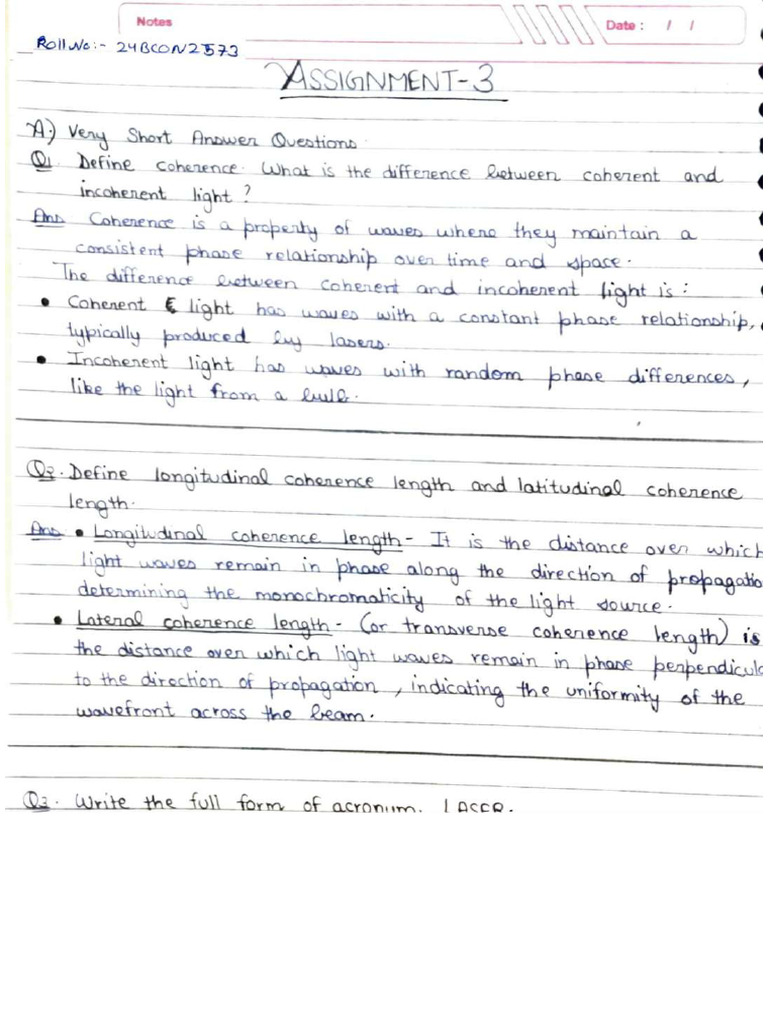 Notes
Date : / /
Roll No:- 24BCON2573
ASSIGNMENT-3
A.) Very Short Answer Questions.
Q1. Define coherence. What is the difference between coherent and
incoherent light ?
Ans Coherence is a property of waves where they maintain a
consistent phase relationship over time and space.
The difference between coherent and incoherent light is :
• Coherent light has waves with a constant phase relationship,
typically produced by lasers.
• Incoherent light has waves with random phase differences,
like the light from a bulb.
Q2. Define longitudinal coherence length and latitudinal coherence
length.
Ans • Longitudinal coherence length - It is the distance over which
light waves remain in phase along the direction of propagatio
determining the monochromaticity of the light source.
• Lateral coherence length - (or transverse coherence length) is
the distance over which light waves remain in phase perpendicula
to the direction of propagation, indicating the uniformity of the
wavefront across the beam.
Q3. Write the full form of acronum. LASER.